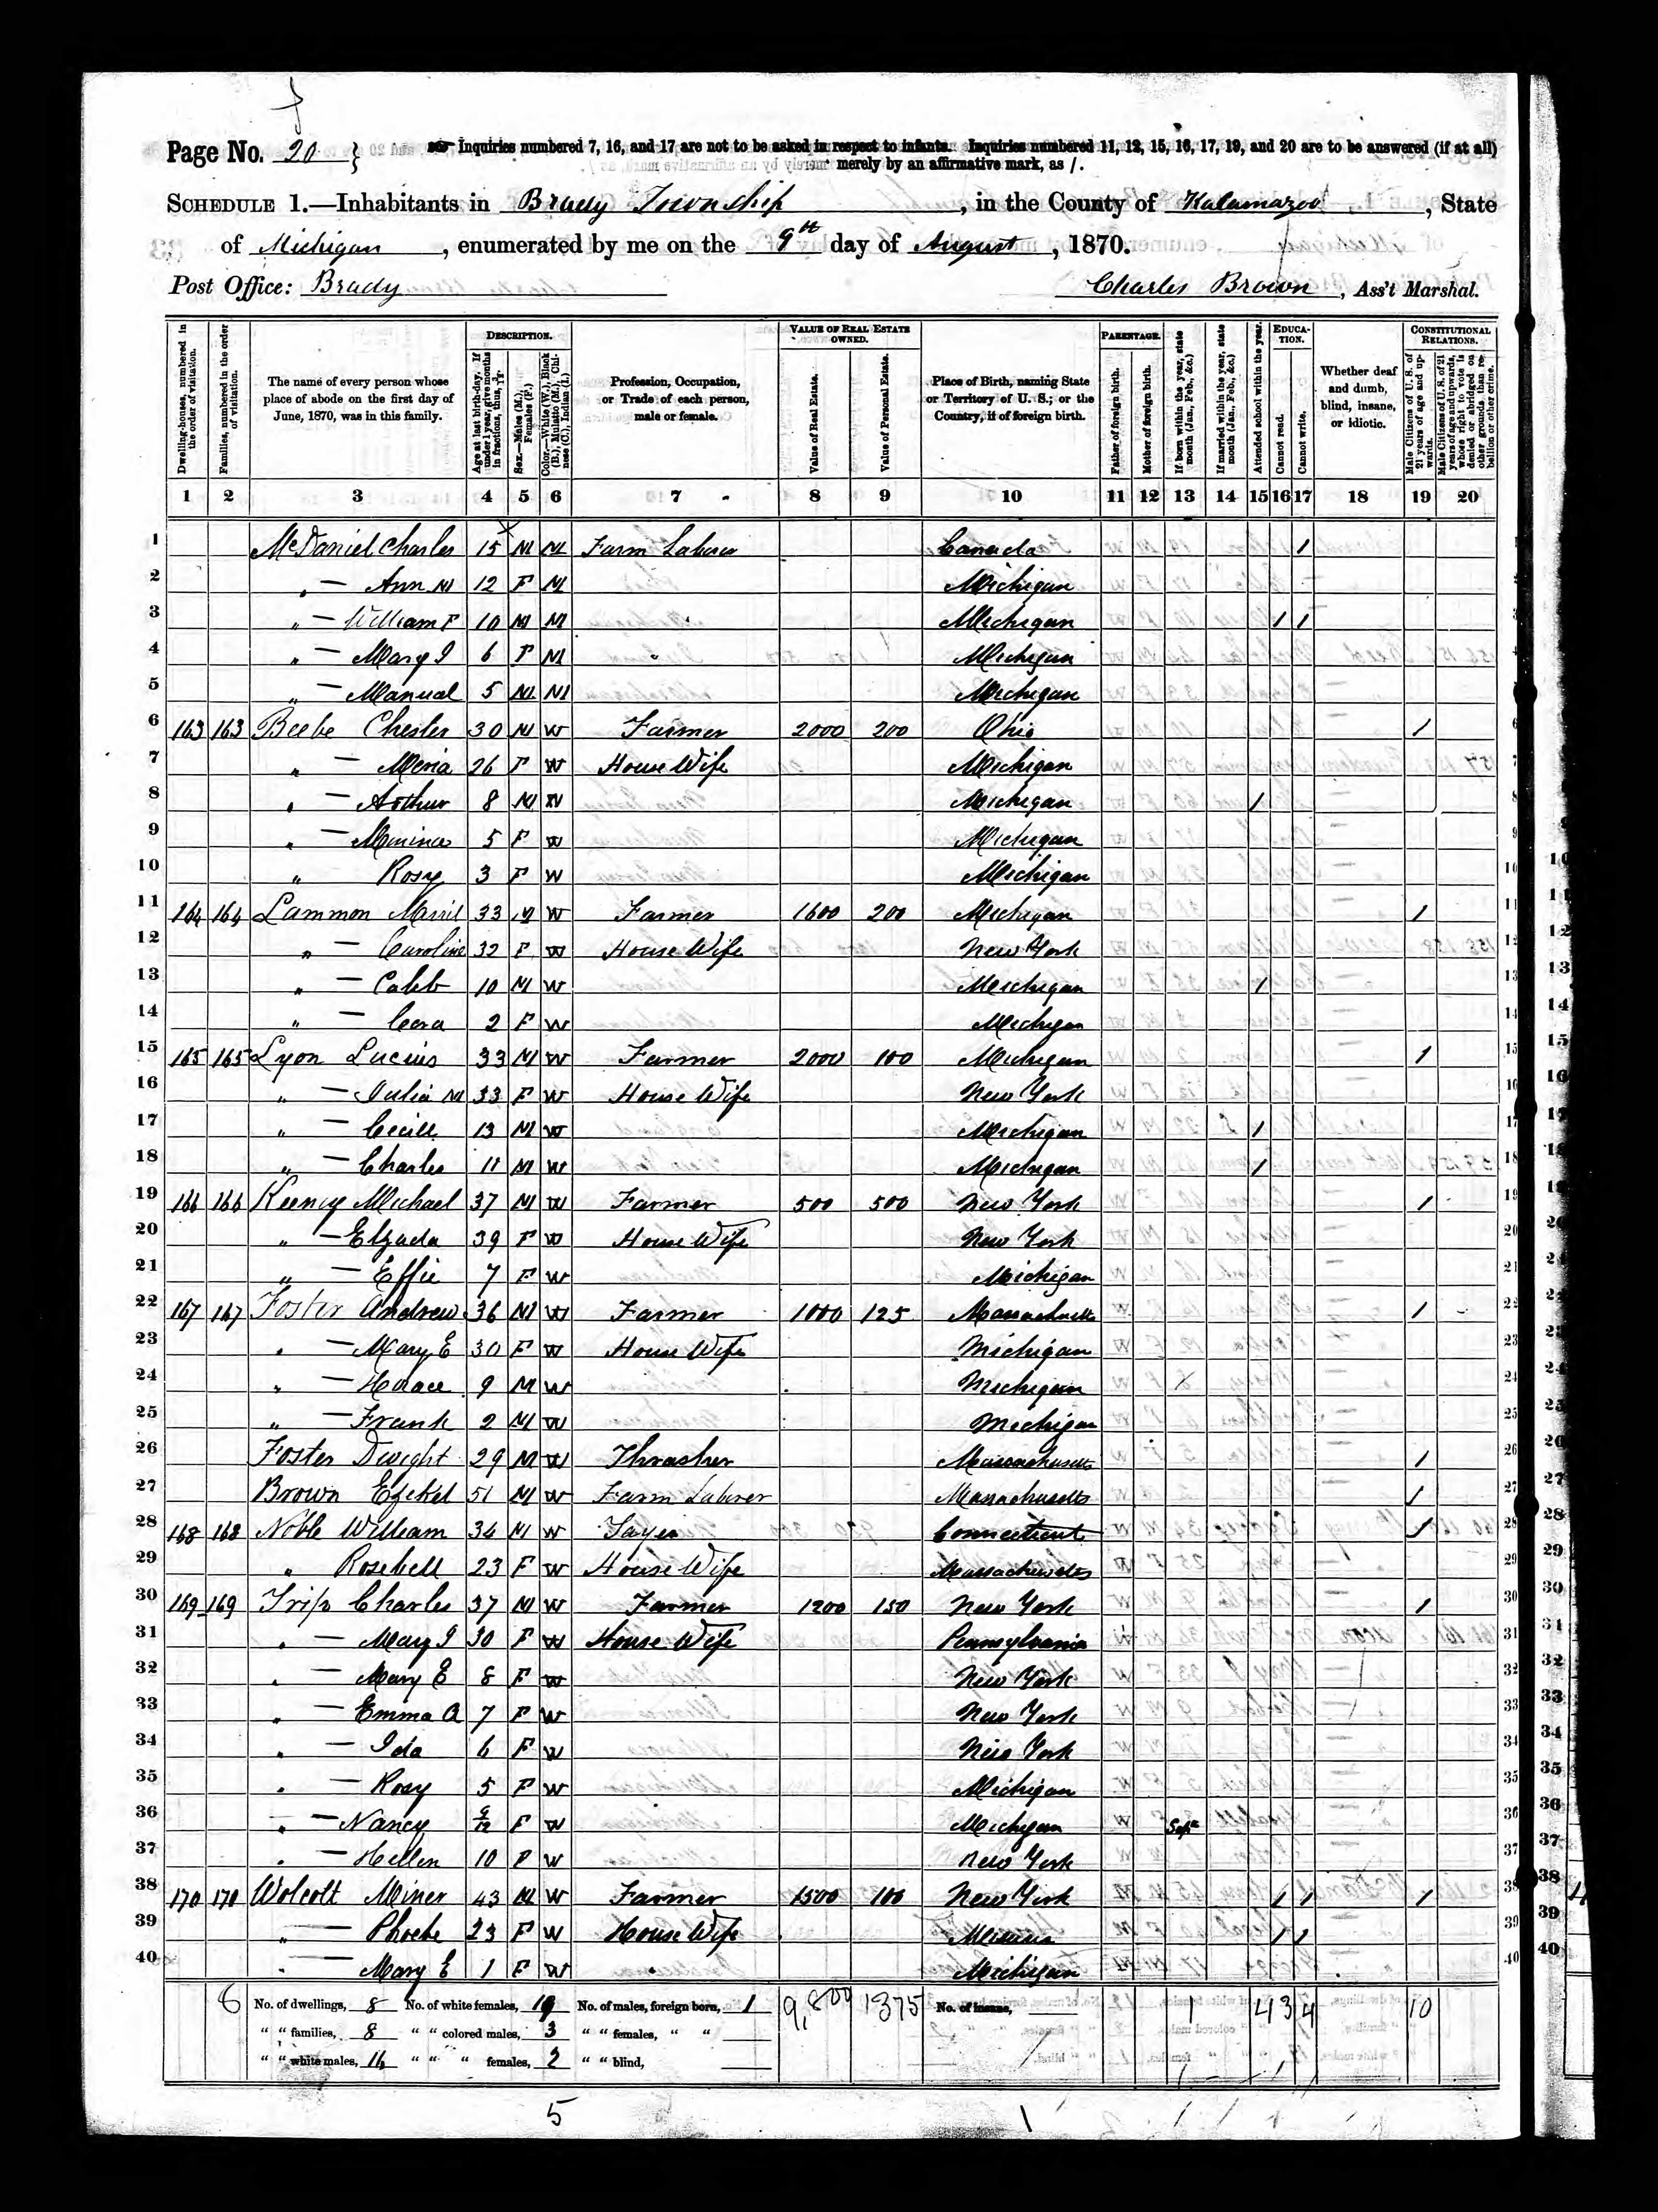 Page No. 20 } Inquiries numbered 7, 16, and 17 are not to be asked in respect to infants. Inquiries numbered 11, 12, 15, 16, 17, 19, and 20 are to be answered (if at all)
merely by an affirmative mark, as /.
SCHEDULE 1.—Inhabitants in Brady Township, in the County of Kalamazoo, State
of Michigan, enumerated by me on the 9th day of August, 1870.
Post Office: Brady Charles Brown, Ass't Marshal.
Dwelling-houses, numbered in the order of visitation.
Families, numbered in the order of visitation.
The name of every person whose place of abode on the first day of June, 1870, was in this family.
DESCRIPTION.
Age at last birth-day. If under 1 year, give months in fractions, thus, 3/12
Sex.—Males (M.), Females (F.)
Color.—White (W.), Black (B.), Mulatto (M.), Chinese (C.), Indian (I.)
Profession, Occupation, or Trade of each person, male or female.
VALUE OF REAL ESTATE OWNED.
Value of Real Estate.
Value of Personal Estate.
Place of Birth, naming State or Territory of U. S.; or the Country, if of foreign birth.
PARENTAGE.
Father of foreign birth.
Mother of foreign birth.
If born within the year, state month (Jan., Feb., &c.)
If married within the year, state month (Jan., Feb., &c.)
Attended school within the year.
EDUCATION.
Cannot read.
Cannot write.
Whether deaf and dumb, blind, insane, or idiotic.
CONSTITUTIONAL RELATIONS.
Male Citizens of U. S. of 21 years of age and upwards.
Male Citizens of U. S. of 21 years of age and upwards, whose right to vote is denied or abridged on other grounds than rebellion or other crime.
1 2 3 4 5 6 7 8 9 10 11 12 13 14 15 16 17 18 19 20
1 McDaniel Charles 15 M M Farm Laborer Canada /
2 " — Ann M 12 F M Michigan
3 " — William F 10 M M Michigan / /
4 " — Mary J 6 F M Michigan
5 " — Manual 5 M M Michigan
6 163 163 Beebe Chester 30 M W Farmer 2000 200 Ohio /
7 " — 26 F W House Wife Michigan
8 " — Arthur 8 M W Michigan /
9 " — 5 F W Michigan
10 " Rosy 3 F W Michigan
11 164 164 Lammon 33 M W Farmer 1600 200 Michigan /
12 " — Caroline 32 F W House Wife New York
13 " — Caleb 10 M W Michigan /
14 " — Cora 2 F W Michigan
15 165 165 Lyon Lucius 33 M W Farmer 2000 100 Michigan /
16 " — Julia M 33 F W House Wife New York
17 " — Cecill 13 M W Michigan /
18 " — Charles 11 M W Michigan /
19 166 166 Keency Michael 37 M W Farmer 500 500 New York /
20 " — Elzada 39 F W House Wife New York
21 " — Effie 7 F W Michigan
22 167 167 Foster Andrew 36 M W Farmer 1000 125 Massachusetts /
23 " — Mary E 30 F W House Wife Michigan
24 " — Horace 9 M W Michigan
25 " — Frank 2 M W Michigan
26 Foster Dwight 29 M W Thrasher Massachusetts /
27 Brown Ezekel 51 M W Farm Laborer Massachusetts /
28 168 168 Noble William 34 M W Connecticut /
29 " Rosebell 23 F W House Wife Massachusetts
30 169 169 Trip Charles 37 M W Farmer 1200 150 New York /
31 " — Mary J 30 F W House Wife Pennsylvania
32 " — Mary E 8 F W New York
33 " — Emma A 7 F W New York
34 " — Ida 6 F W New York
35 " — Rosy 5 F W Michigan
36 " — Nancy 9/12 F W Michigan Sept
37 " — Hellen 10 F W New York
38 170 170 Wolcott Miner 43 M W Farmer 1500 100 New York / / /
39 " — Phoebe 23 F W House Wife Illinois / /
40 " — Mary E 1 F W Michigan
6 No. of dwellings, 8 No. of white females, 19 No. of males, foreign born, 1 9,800 1375 No. of insane, 1 4 3 4 10
" " families, 8 " " colored males, 3 " " females, " "
" " white males, 16 " " " females, 2 " " blind,
5 1